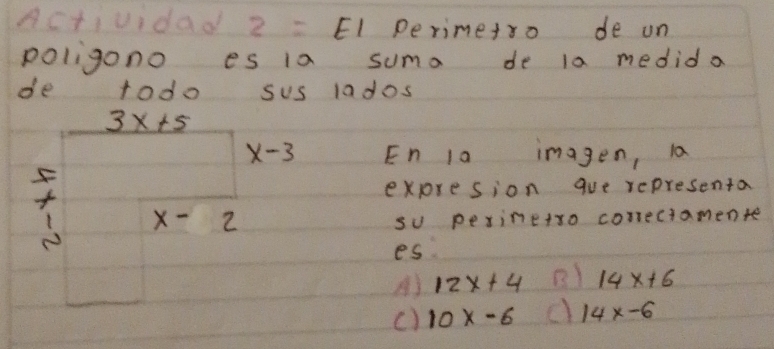 Actividad 2 = El Perimetro de un
poligono es la suma de la medida
de todo sus lados
3x+5
x-3
4x-2
x- 2
En la imagen, la
expresion que representa
su perimetro correctamente
es:
A) 12x+4 B) 14x+6
C) 10x-6 C) 14x-6